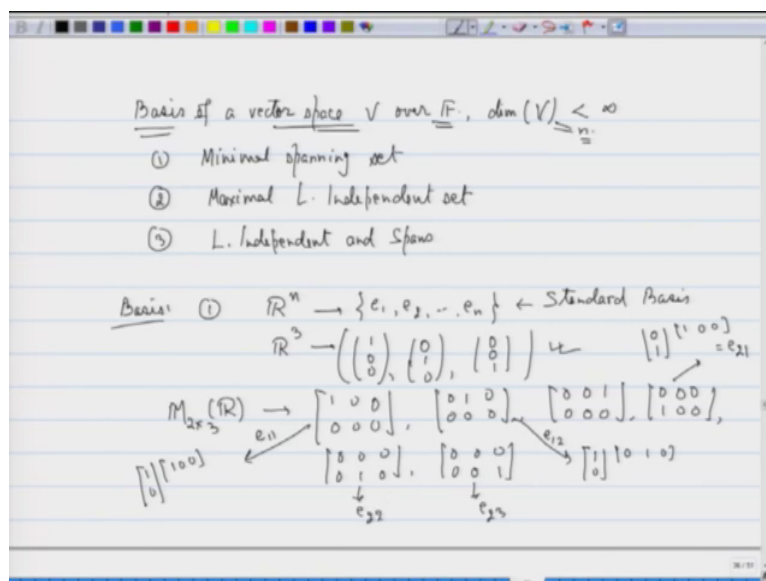 Basis of a vector space V over F, dim(V) < ∞
n.
① Minimal spanning set
② Maximal L. Independent set
③ L. Independent and Spans
Basis: ① ℝⁿ → {e₁, e₂, ..., eₙ} ← Standard Basis
ℝ³ → ((1 0 0), (0 1 0), (0 0 1)) [0 1] [1 0 0] = e₂₁
M₂ₓ₃(ℝ) → [1 0 0; 0 0 0], [0 1 0; 0 0 0], [0 0 1; 0 0 0], [0 0 0; 1 0 0],
e₁₁ e₁₂
[1 0] [1 0 0] [0 0 0; 0 1 0], [0 0 0; 0 0 1] [1 0] [0 1 0]
e₂₂ e₂₃